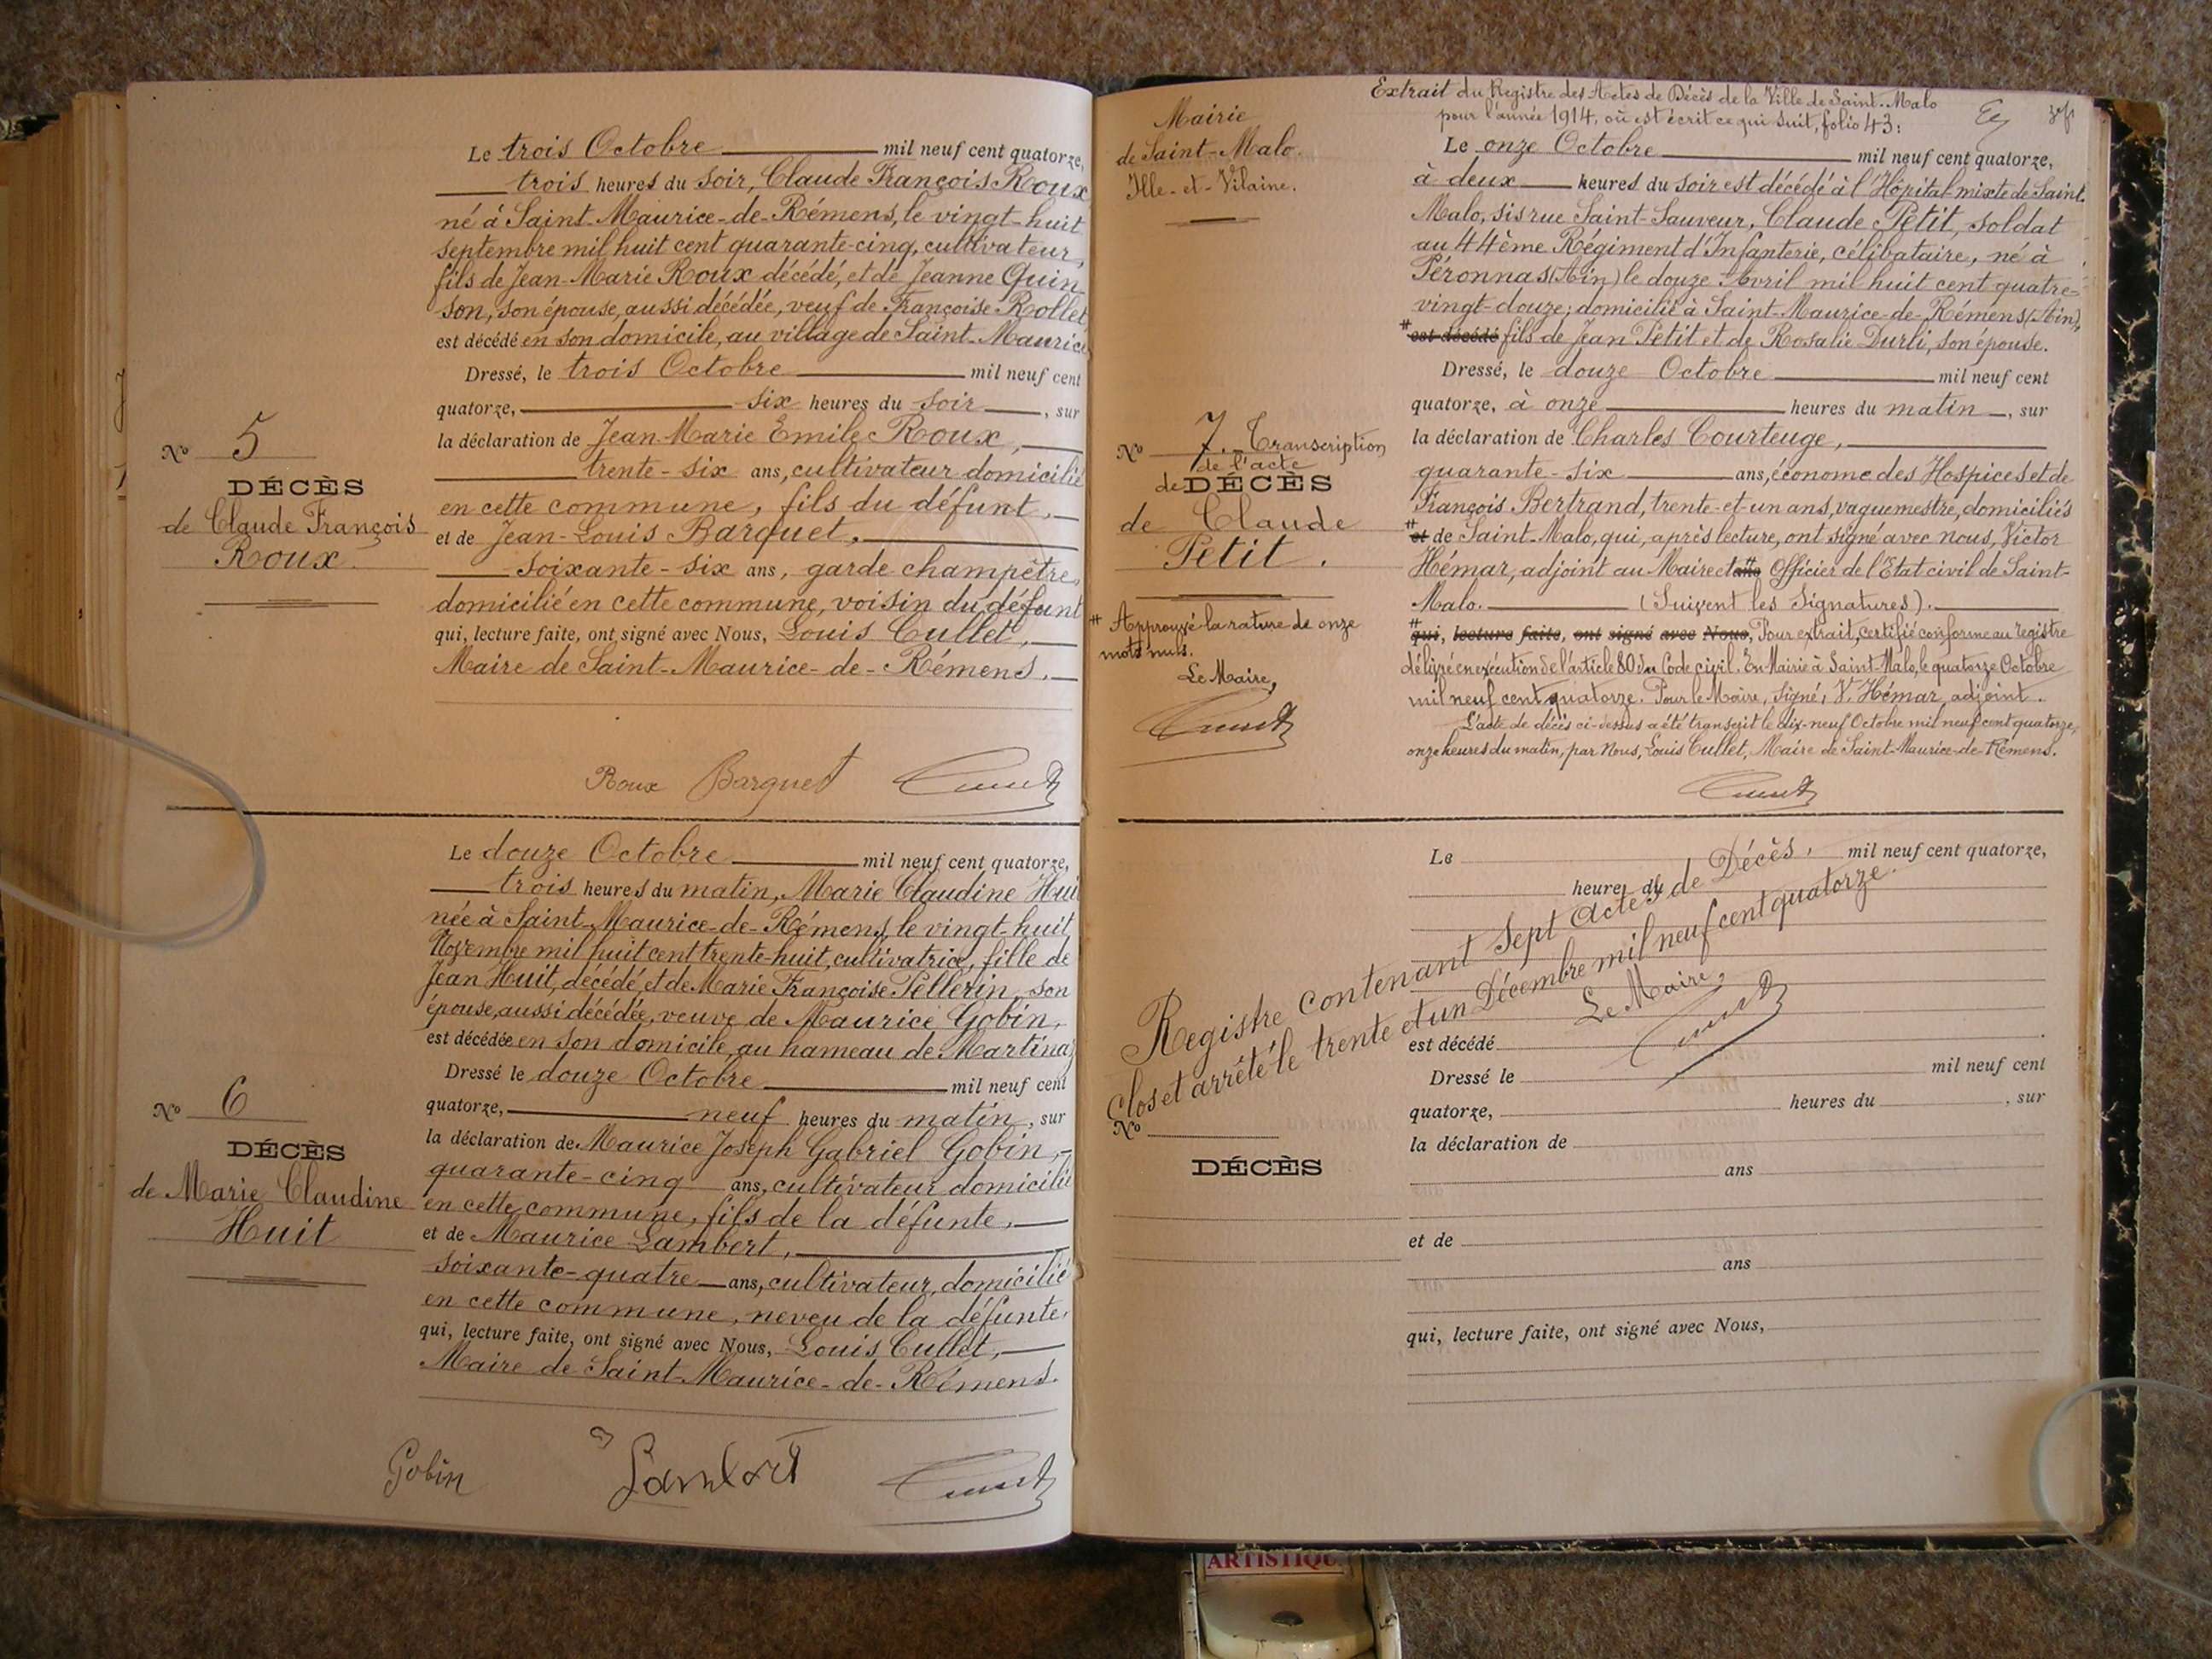 Le trois Octobre mil neuf cent quatorze,
trois heures du soir, Claude François Roux
né à Saint-Maurice-de-Rémens, le vingt-huit
septembre mil huit cent quarante-cinq, cultivateur,
fils de Jean-Marie Roux décédé, et de Jeanne Quin
son, son épouse, aussi décédée, veuf de Françoise Rollet
est décédé en son domicile, au village de Saint-Maurice
Dressé, le trois Octobre mil neuf cent
quatorze, six heures du soir, sur
la déclaration de Jean-Marie Emile Roux,
trente-six ans, cultivateur domicilié
en cette commune, fils du défunt,
et de Jean-Louis Barquet,
soixante-six ans, garde champêtre,
domicilié en cette commune, voisin du défunt
qui, lecture faite, ont signé avec Nous, Louis Cullet,
Maire de Saint-Maurice-de-Rémens.
Nº 5
DÉCÈS
de Claude François
Roux
Roux Barquet
Le douze Octobre mil neuf cent quatorze,
trois heures du matin, Marie Claudine Hui
née à Saint-Maurice-de-Rémens, le vingt-huit
Novembre mil huit cent trente-huit, cultivatrice, fille de
Jean Huit, décédé, et de Marie Françoise Pellerin, son
épouse, aussi décédée, veuve de Maurice Gobin,
est décédée en son domicile, au hameau de Martinaz
Dressé le douze Octobre mil neuf cent
quatorze, neuf heures du matin, sur
la déclaration de Maurice Joseph Gabriel Gobin,
quarante-cinq ans, cultivateur domicilié
en cette commune, fils de la défunte,
et de Maurice Lambert,
soixante-quatre ans, cultivateur, domicilié
en cette commune, neveu de la défunte,
qui, lecture faite, ont signé avec Nous, Louis Cullet,
Maire de Saint-Maurice-de-Rémens.
Nº 6
DÉCÈS
de Marie Claudine
Huit
Gobin Lambert
Mairie
de Saint-Malo.
Ille-et-Vilaine.
Extrait du Registre des Actes de Décès de la Ville de Saint-Malo
pour l'année 1914, où est écrit ce qui suit, folio 43:
Le onze Octobre mil neuf cent quatorze,
à deux heures du soir est décédé à l'Hôpital mixte de Saint-
Malo, sis rue Saint-Sauveur, Claude Petit, soldat
au 44ème Régiment d'Infanterie, célibataire, né à
Péronnas (Ain) le douze Avril mil huit cent quatre-
vingt-douze; domicilié à Saint-Maurice-de-Rémens (Ain),
# est décédé fils de Jean Petit et de Rosalie Durli, son épouse.
Dressé, le douze Octobre mil neuf cent
quatorze, à onze heures du matin, sur
la déclaration de Charles Courteuge,
quarante-six ans, économe des Hospices et de
François Bertrand, trente-et-un ans, vaguemestre, domiciliés
# et de Saint-Malo, qui, après lecture, ont signé avec nous, Victor
Hémar, adjoint au Maire et Officier de l'Etat civil de Saint-
Malo. (Suivent les Signatures).
# qui, lecture faite, ont signé avec Nous, Pour extrait, certifié conforme au registre
délivré en exécution de l'article 80 du Code civil. En Mairie à Saint-Malo, le quatorze Octobre
mil neuf cent quatorze. Pour le Maire, signé, V. Hémar, adjoint.
L'acte de décès ci-dessus a été transcrit le dix-neuf Octobre mil neuf cent quatorze,
onze heures du matin, par Nous, Louis Cullet, Maire de Saint-Maurice-de-Rémens.
Nº 7. Transcription
de l'acte
de DÉCÈS
de Claude
Petit.
# Approuvé la rature de onze
mots nuls.
Le Maire,
Le mil neuf cent quatorze,
heures du
Registre contenant Sept Actes de Décès,
Clos et arrêté le trente et un Décembre mil neuf cent quatorze.
Le Maire,
est décédé
Dressé le mil neuf cent
quatorze, heures du , sur
la déclaration de
ans
et de
ans
qui, lecture faite, ont signé avec Nous,
Nº
DÉCÈS
ARTISTIQU